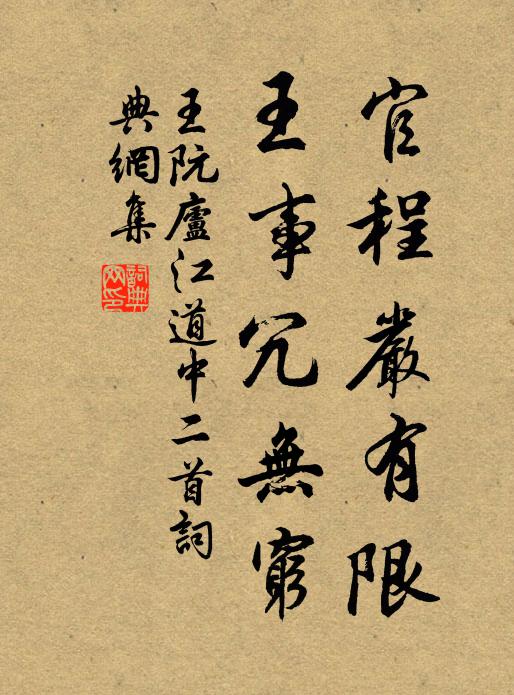 官程嚴有限
王事冗無窮
王阮廬江道中二首詞
典網集
詞典
网印